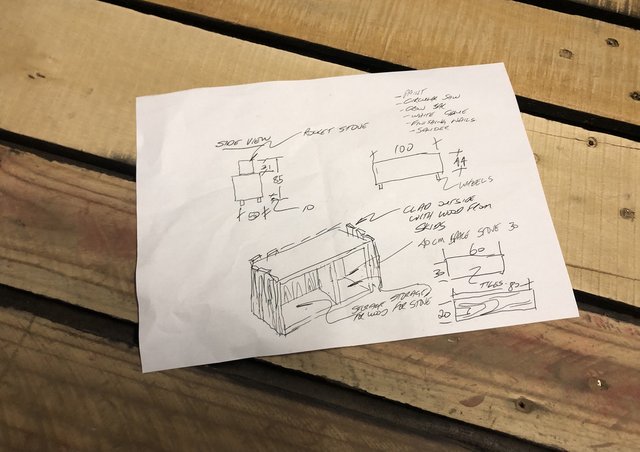 - PAINT
- CIRCULAR SAW
- CROW BAR
- WHITE GLUE
- FINISHING NAILS
- SANDER
SIDE VIEW
ROCKET STOVE
31
85
50
10
100
44
WHEELS
CLAD OUTSIDE
WITH WOOD FROM
SKIDS
40CM STOVE 30
60
30
TILES 80
20
STORAGE
FOR WOOD
STORAGE
FOR STOVE